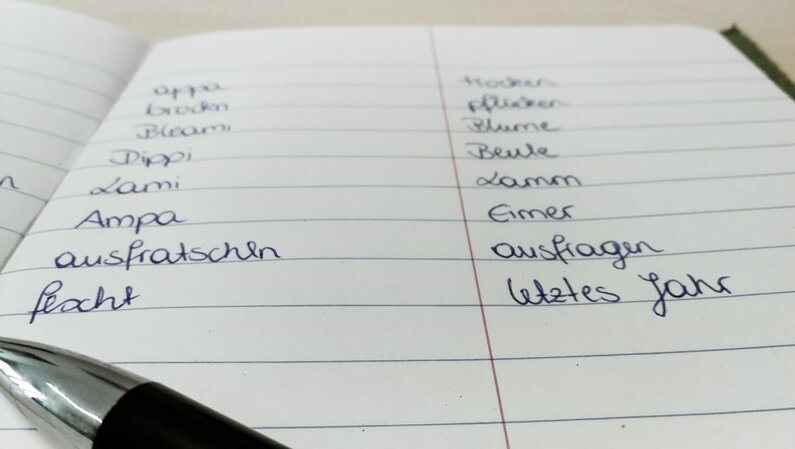 äppa trocken
brockn pflücken
Bleami Blume
Dippi Beule
Lami Lamm
Ampa Eimer
ausfratscheln ausfragen
feacht letztes Jahr